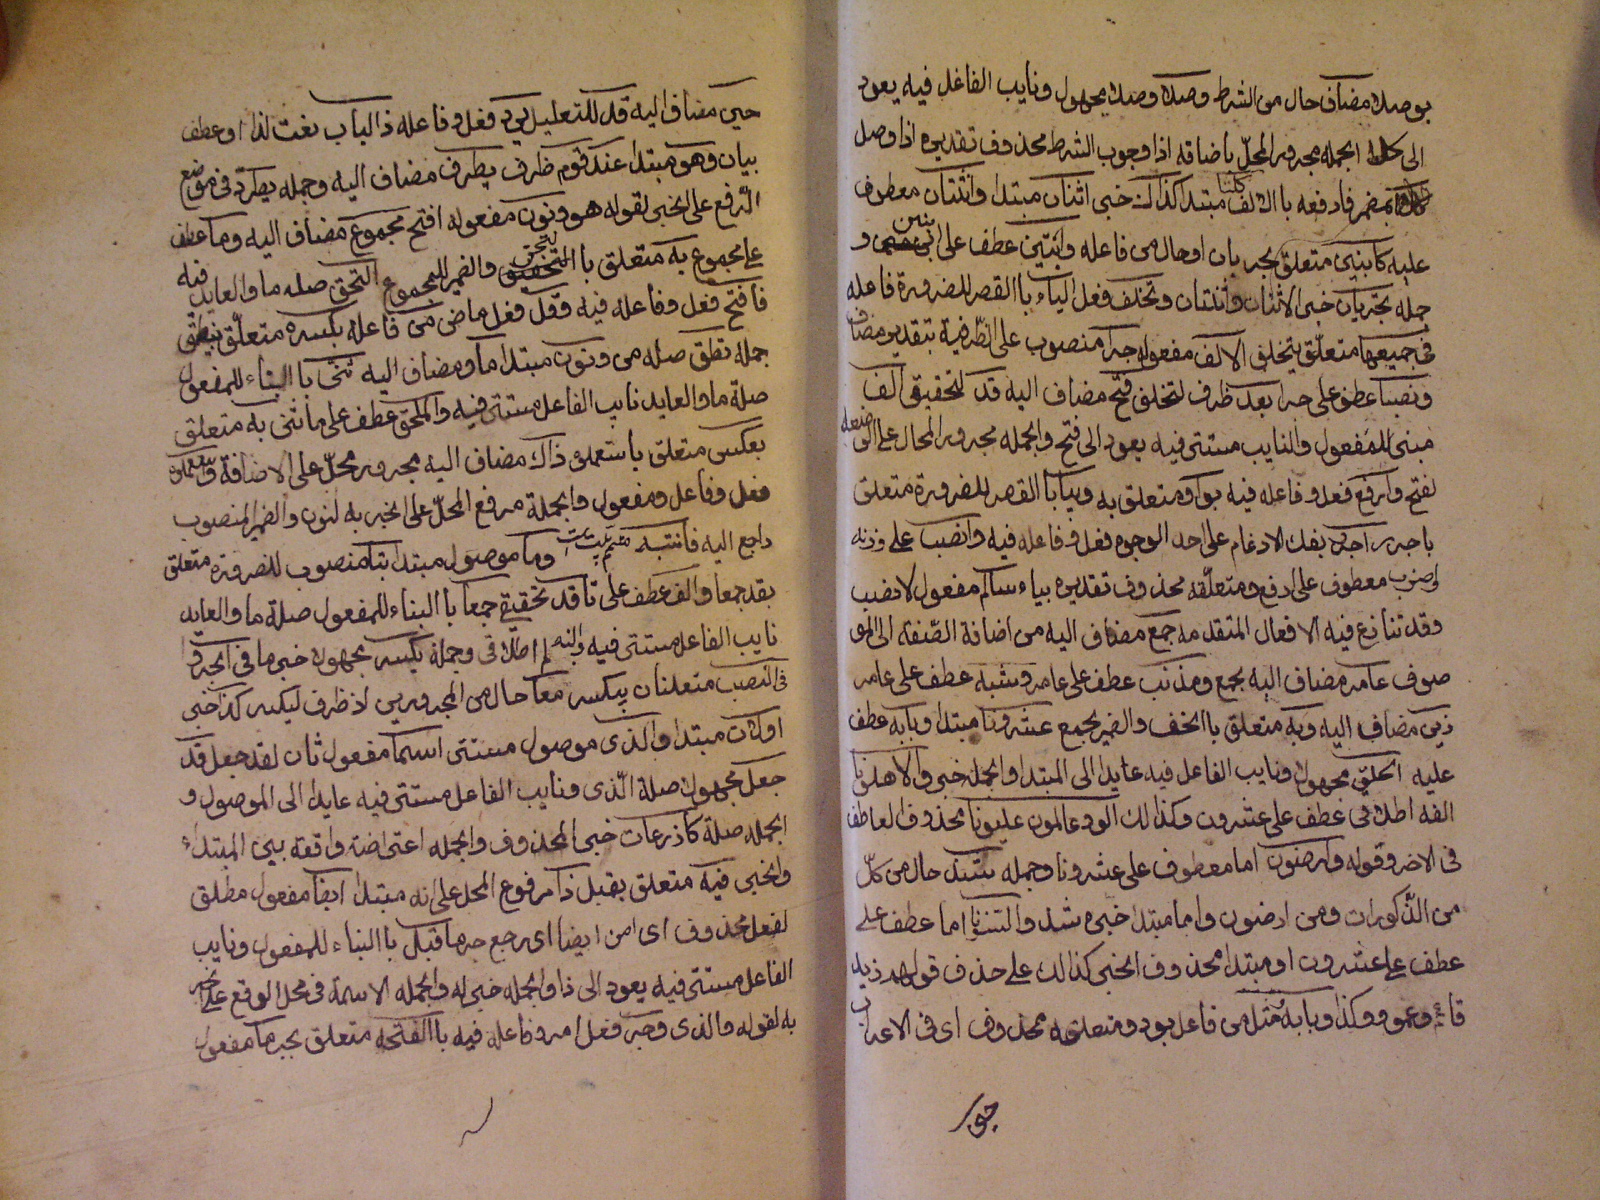 بوصلا مضاف حال من الشرط وصلا وصلا مجهول ونايب الفاعل فيه يعود
الى كلا الجمله مجرور المحلّ باضافه اذا وجوب الشرط محذوف تقديره اذا وصل
بمضمر فارفعه باالالف كلتا مبتدا كذاك خبر اثنان مبتدا واثنتان معطوف
عليه كابنين متعلق بجريان او حال من فاعله وابنتين عطف على ابنين و
جمله يجريان خبر الاثنان واثنتان وتخلف فعل الياء باالقصر للضرورة فاعله
في جميعها متعلّق بتخلف الالف مفعوله جرا منصوب على الظّرفية بتقدير مضاف
ونصبا عطف على جرا بعد ظرف لتخلف فتح مضاف اليه قد لتحقيق الف
مبنى للمفعول والنايب مستتر فيه يعود الى فتح والجمله مجرور المحال على
لفتح وارفع فعل وفاعله فيه بواو متعلق به وبيا باالقصر للضرورة متعلق
باجرر اجرر بفك الادغام على احد الوجوه فعل وفاعله فيه وانصب على وزنه
معطوف على ارفع ومتعلّقه محذوف تقديره بياء سالم مفعول لانصب
وقد تنازع فيه الافعال المتقدمه جمع مضاف اليه من اضافة الصّفة الى المو
صوف عامر مضاف اليه بجمع ومذنب عطف على عامر وشبه عطف على عامر
ذين مضاف اليه وبه متعلق باالحق والضمير لجمع عشرونا مبتدا وبابه عطف
عليه الحق مجهول ونايب الفاعل فيه عايد الى المبتدا والجمله خبر والاهلونا
الفه اطلاقى عطف على عشرون وكذالك الوو عالمون عليونا محذوف العاطف
في الاخر وقوله وارضون اما معطوف على عشرونا وجمله شذ حال من كلّ
من الذّكورات ومن ارضون واما مبتدا خبره شذ والسّنونا اما عطف على
عطف على عشرون او مبتدا محذوف الخبر كذالك على حذف قولهم زيد
قائم وعمرو وكذا وبابه ومثل من فاعل يرد ومتعلقه محذوف اى في الاعراب
حين
حين مضاف اليه قد للتعليل يرد فعل وفاعله ذا الباب نعت لذا او عطف
بيان وهو مبتدا عند قوم ظرف يطرد مضاف اليه وجمله يطرد في موضع
الرّفع على الخبر لقوله هو ونون مفعوله افتح مجموع مضاف اليه وما عطف
على مجموع به متعلق باالتحق والضمير للمجموع التحق صله ما والعايد فيه
فافتح فعل وفاعله فيه وقل فعل ماض من فاعله بكسره متعلّق بنطق
جمله نطق صله من ونون مبتدا ما ومضاف اليه ثنّى باالبناء للمفعول
صلة ما والعايد نايب الفاعل مستتر فيه والملحق عطف على ما ثنى به متعلق
بعكس متعلق باستعملوه ذاك مضاف اليه مجرور محلّ على الاضافة واستعملوه
فعل وفاعل ومفعول والجملة مرفع المحلّ على الخبريه لنون والضمير المنصوب
راجع اليه فانتبه وما موصول مبتدا بتا منصوب للضرورة متعلق
بقد جمعا والف عطف على تا قد تحقيق جمعا باالبناء للمفعول صلة ما والعايد
نايب الفاعل مستتر فيه والفه اطلاقى وجملة يكسر مجهول خبر ما في الجر و
في النصب متعلقان بيكسر معا حال من المجرورين اذ ظرف ليكسر كذا خبر
اولات مبتدا والذى موصول مستتر اسما مفعول ثان لقد جعل قد
جعل مجهول صلة الّذى ونايب الفاعل مستتر فيه عايد الى الموصول و
الجمله صلة كاذرعات خبر المحذوف والجمله اعتراضه واقعة بين المبتداء
والخبر فيه متعلق بقبل ذا مرفوع المحل على انه مبتدا ايضا مفعول مطلق
لفعل محذوف اى امن ايضا اى رجع جرما قبل باالبناء للمفعول ونايب
الفاعل مستتر فيه يعود الى ذا والجمله خبر له والجمله الاسمية في محل الوقع على خبر
به لقوله والذى وجر فعل امر وفاعله فيه باالفتحه متعلق بجر ما مفعول